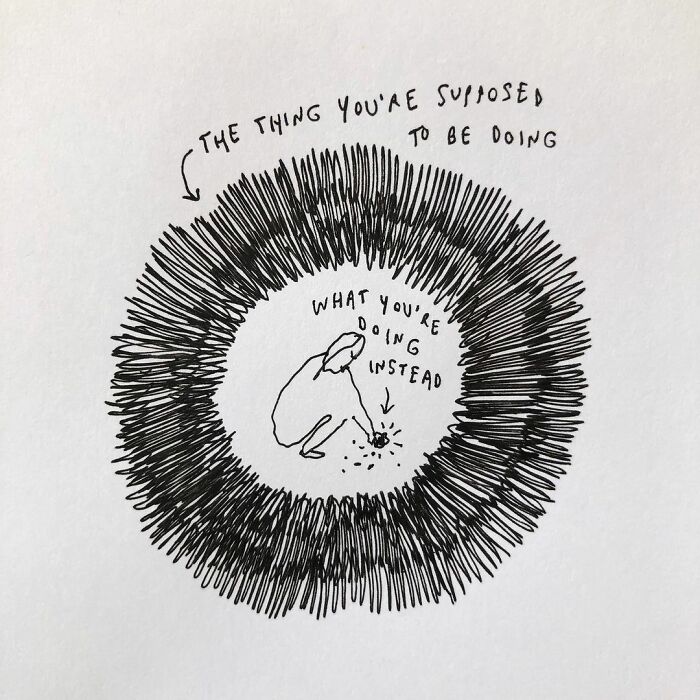 THE THING YOU'RE SUPPOSED
TO BE DOING
WHAT YOU'RE
DOING
INSTEAD